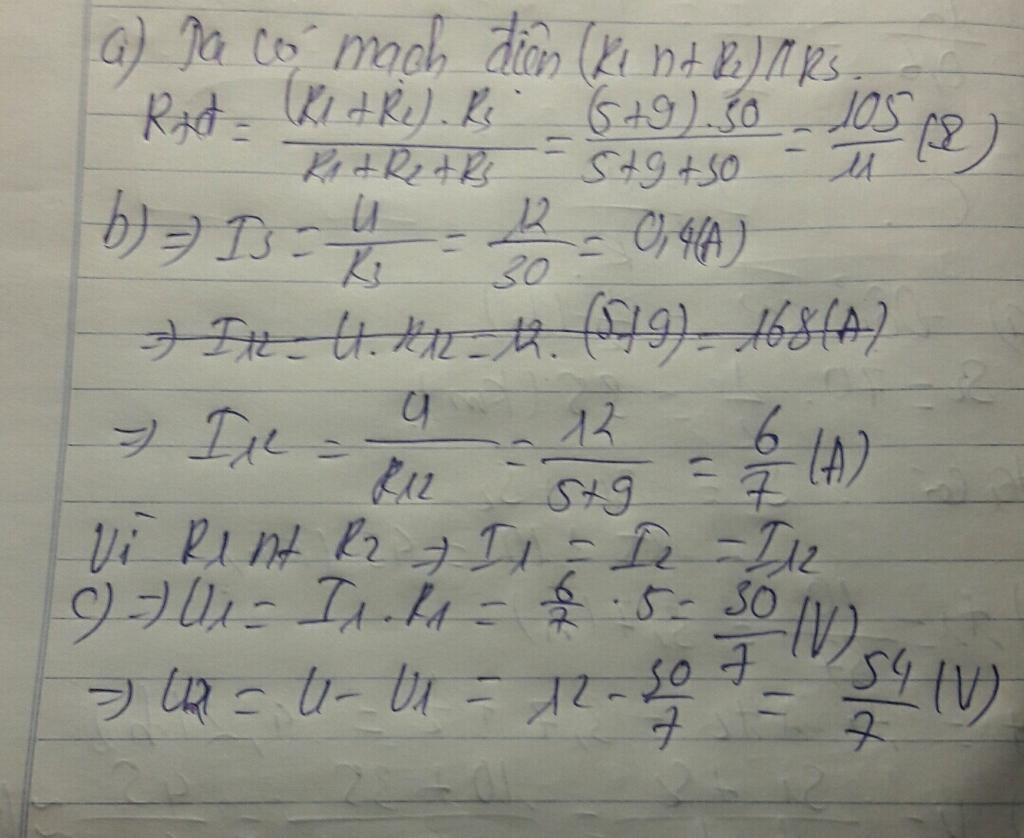 a) Ta có mạch điện (R1 nt R2) // R3.
Rtđ = (R1 + R2) . R3 / R1 + R2 + R3 = (5+9).30 / 5+9+30 = 105/11 (Ω)
b) => I3 = U/R3 = 12/30 = 0,4(A)
=> I12 = U. R12 = 12. (5+9) = 168(A)
=> I12 = U/R12 = 12/5+9 = 6/7 (A)
Vì R1 nt R2 => I1 = I2 = I12
c) => U1 = I1 . R1 = 6/7 . 5 = 30/7 (V)
=> U2 = U - U1 = 12 - 30/7 = 54/7 (V)